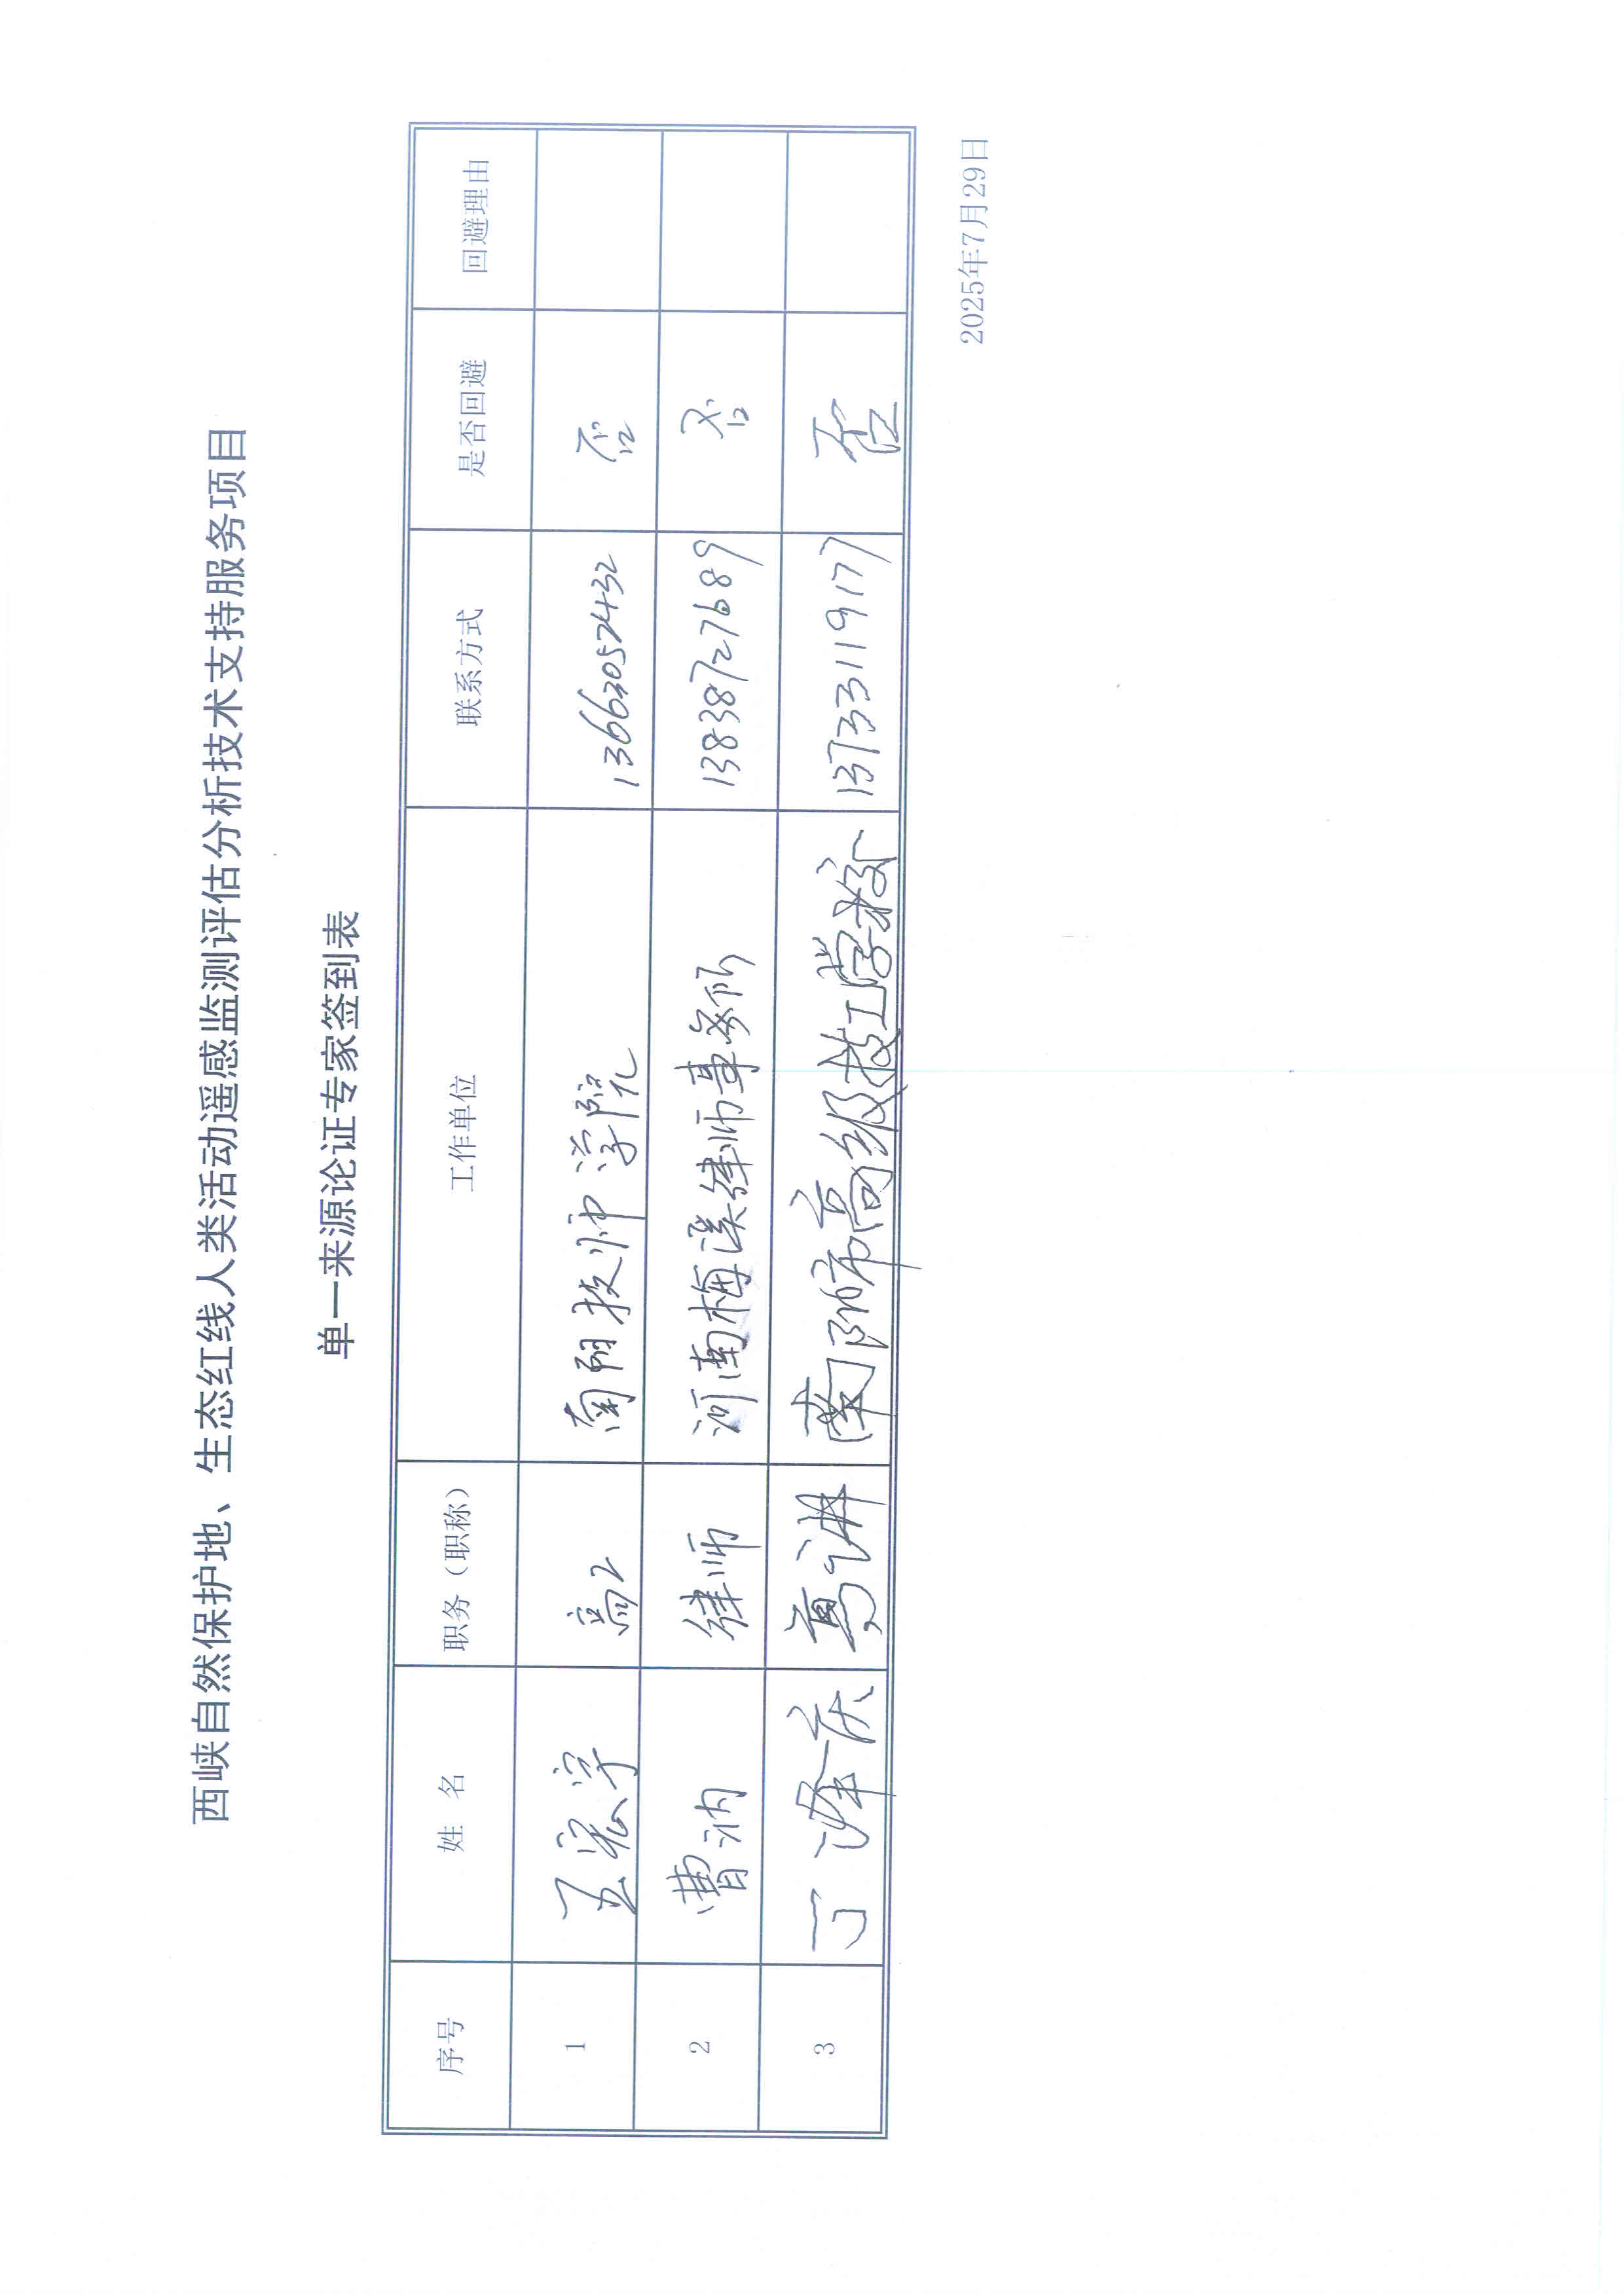 西峡自然保护地、生态红线人类活动遥感监测评估分析技术支持服务项目
单一来源论证专家签到表
序号 姓 名 职务（职称） 工作单位 联系方式 是否回避 回避理由
1 高工 南阳技师学院 13663057432 否
2 曹 律师 河南梅溪律师事务所 13838727689 否
3 丁泽庆 高讲 南阳市高级技工学校 13733119177 否
2025年7月29日